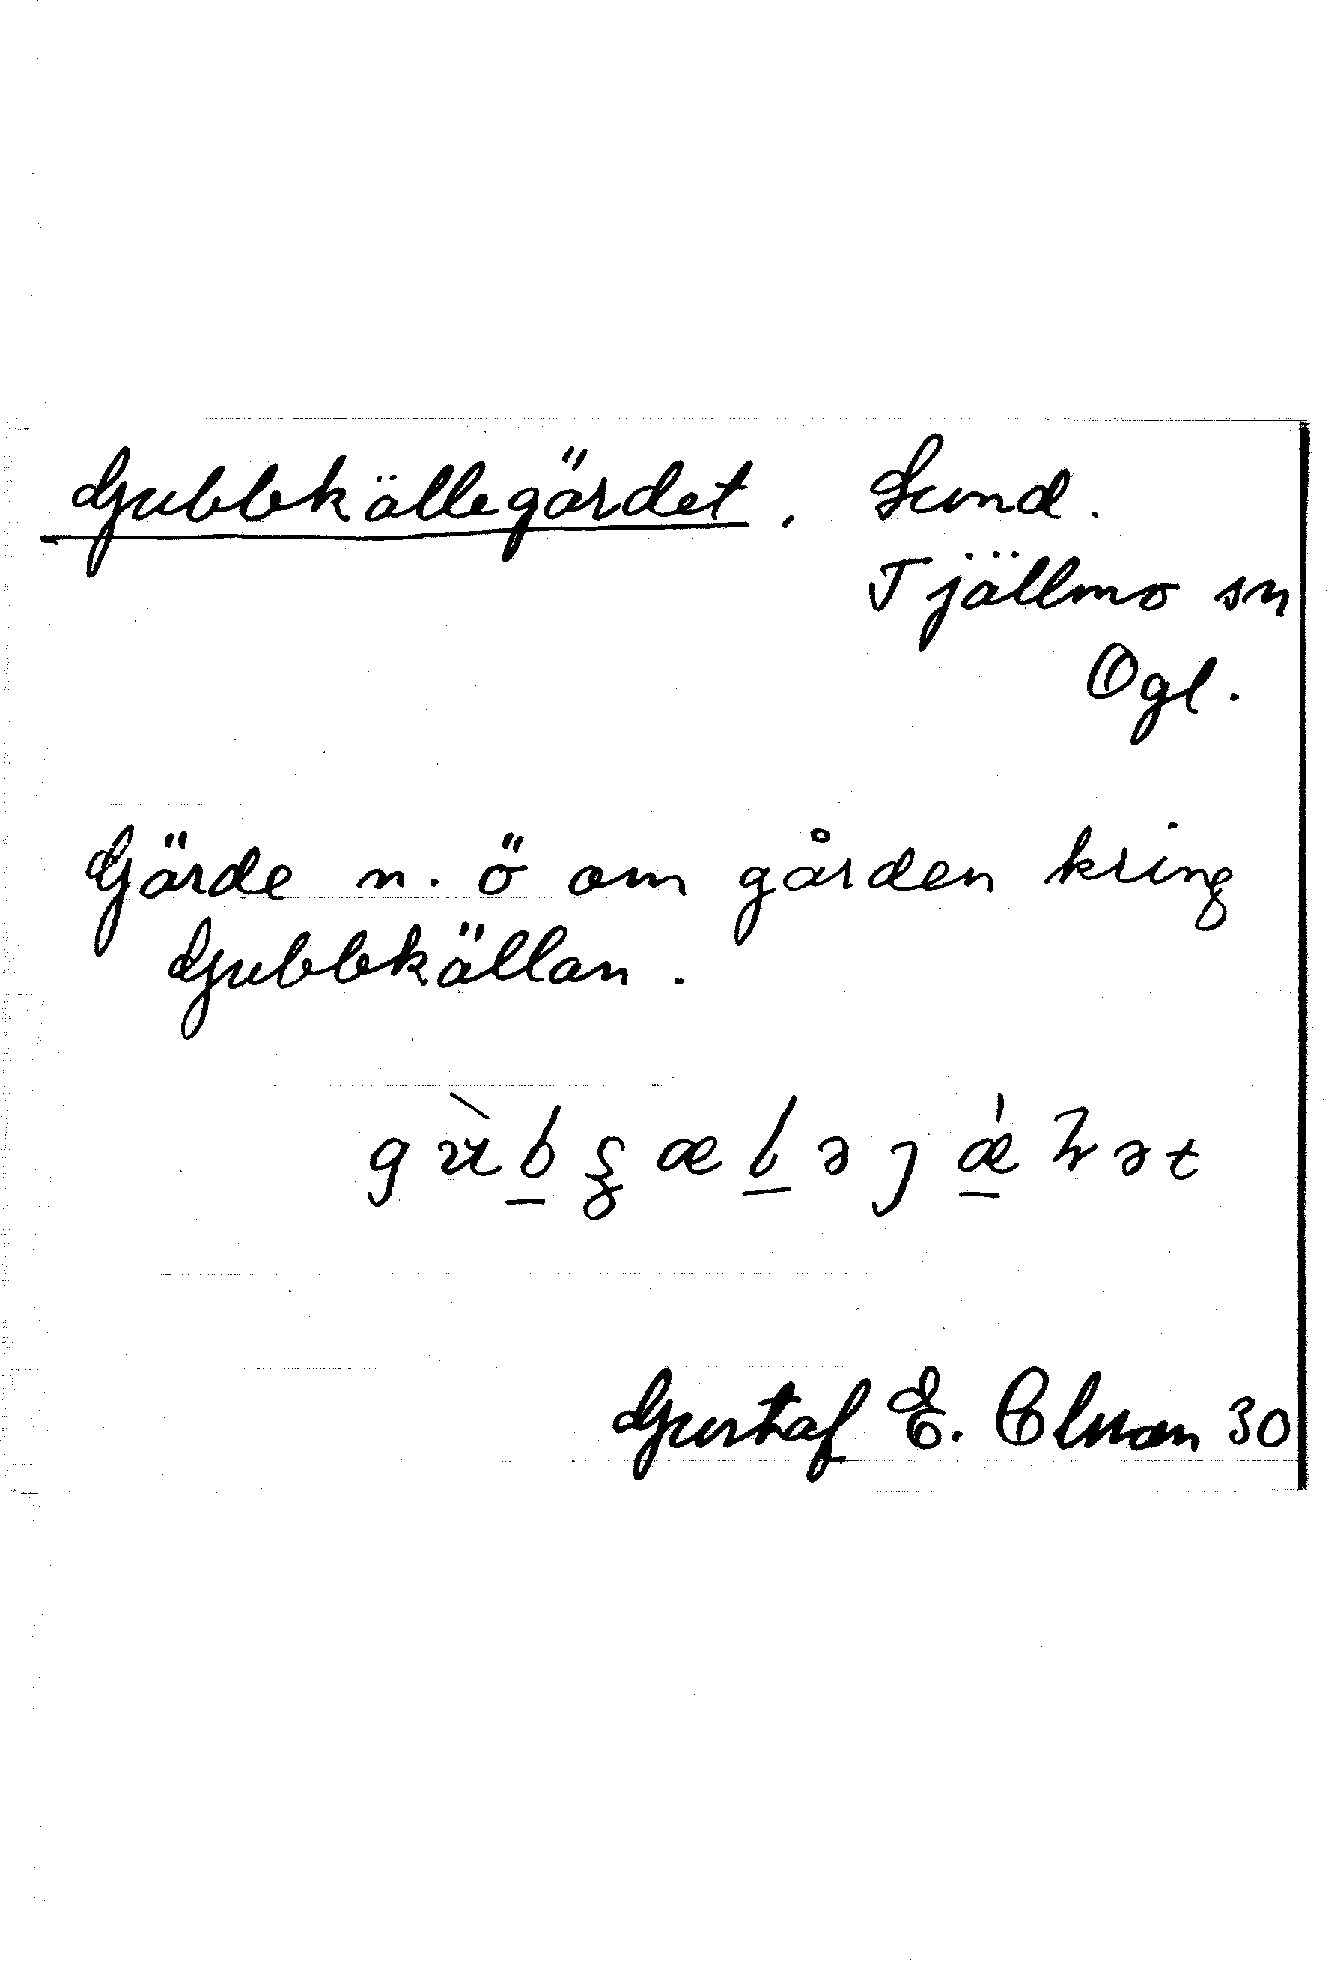 Gubbkällegärdet. Lund.
Tjällmo sn
Ögl.
Gärde n. ö om gården kring
Gubbkällan.
Gustaf E. 30